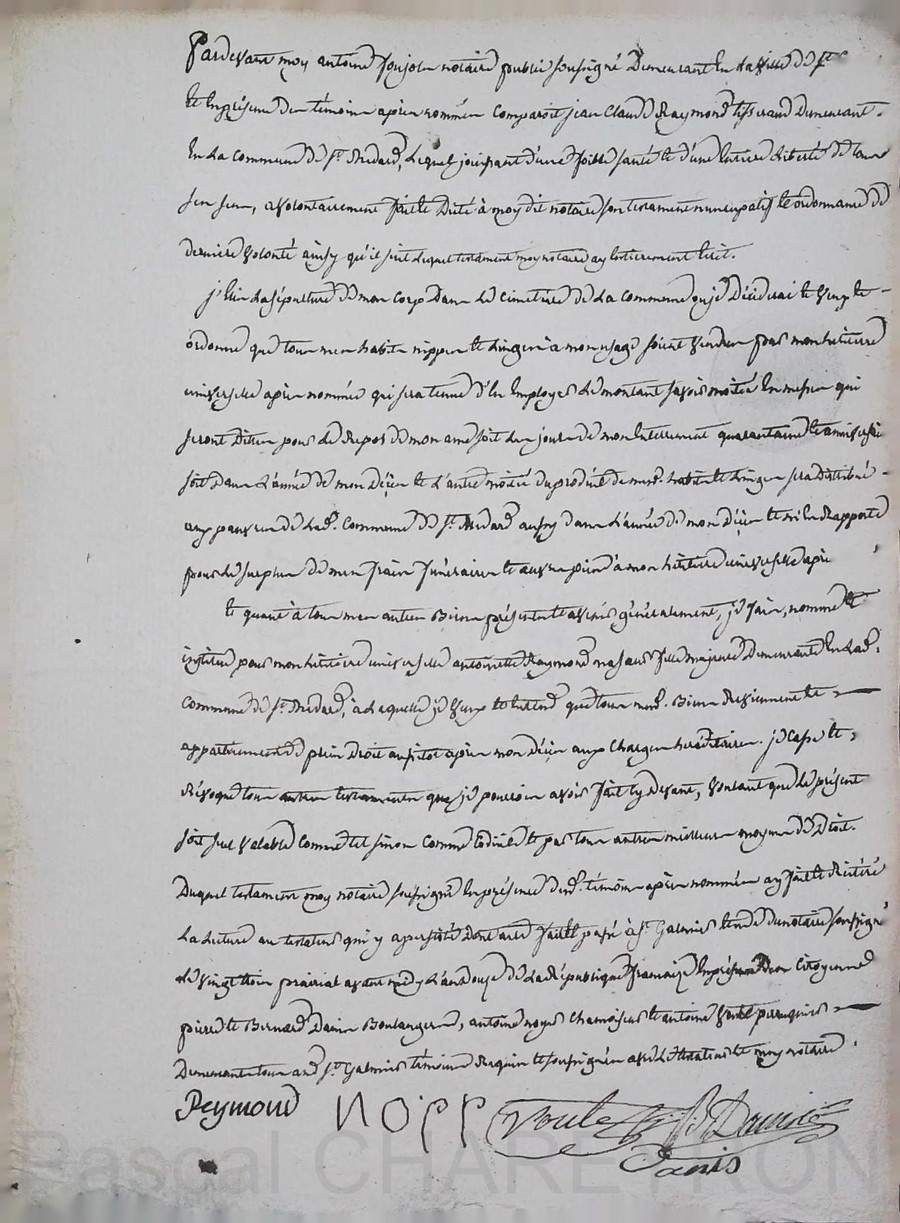 Pardevant moy antoine notaire public soussigné Demeurant En la ville de St
Et En présence des témoins après nommés Comparoit jean Claude Raymond tisserand Demeurant
En La Commune de St. Medard, Lequel jouissant d'une foible santé et d'une Entiere Liberté de tous
ses sens, a volontairement fait et Dicté à moy dit notaire son testament nuncupatif et ordonnance de
derniere volonté ainsy qu'il suit Lequel testament moy notaire ay Entierement Ecrit.
j'Elis La sépulture de mon Corps Dans Le Cimetière de La Commune ou je Déciderai Et veux Et
ordonne que tous mes habits nippes et Linges à mon usage soient vendus par mon héritiere
universelle après nommée qui sera tenue d'En Employer Le montant savoir moitié En messes qui
seront Dites pour Le Repos de mon ame soit Les jours de mon Enterrement quarantaine et anniversaire
soit Dans L'année de mon Décès Et L'autre moitié du produit de mesd. habits et Linges sera Distribué
aux pauvres de Lad. Commune de St. Medard aussy dans L'année de mon Décès Et m'En Rapporte
pour Le surplus de mes frais funéraires et aux à mon héritiere universelle après
Et quant à tous mes autres Biens présents et avenir généralement, je fais, nomme Et
institue pour mon héritiere universelle antoinette Raymond ma fille majeure Demeurante En Lad.
Commune de St. Medard, à Laquelle je veux Et Entend que tous mesd. Biens Reviennent et
appartiennent de plein Droit aussitot après mon Décès aux Charges héréditaires. je Casse et
Révoque tous autres testaments que je pourrois avoir fait Cy devant, voulant que Le présent
soit seul valable Comme tel sinon Comme Codicile et par tous autres meilleurs moyens de Droit.
Duquel testament moy notaire soussigné En présence desd. témoins après nommés ay fait et Réitéré
La Lecture au testateur qui y a persisté Dont acte fait et passé à St. Galmier Etude du notaire soussigné
Le vingt trois prairial avant midy L'an douze de La République française En présence des Citoyens
pierre et Bernard Danis Boulangers, antoine noyer Chamoiseur et antoine perruquier
Demeurants tous aud. St. Galmier témoins Requis et soussignés avec Le testateur et moy notaire.
Reymond